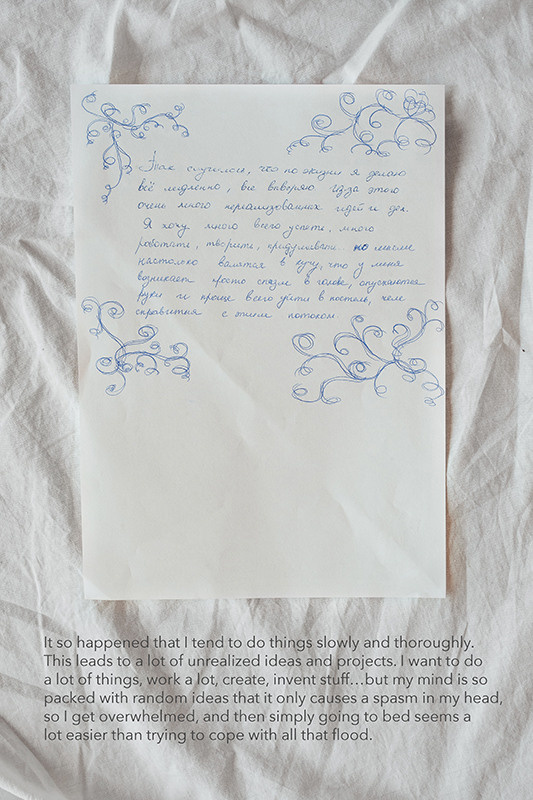 Так случилось, что по жизни я делаю
всё медленно, всё выверяю из-за этого
очень много нереализованных идей и дел.
Я хочу много всего успеть, много
работать, творить, придумывать... но мысли
настолько валятся в кучу, что у меня
возникает просто спазм в голове, опускаются
руки и проще всего уйти в постель, чем
справиться с этим потоком
It so happened that I tend to do things slowly and thoroughly.
This leads to a lot of unrealized ideas and projects. I want to do
a lot of things, work a lot, create, invent stuff...but my mind is so
packed with random ideas that it only causes a spasm in my head,
so I get overwhelmed, and then simply going to bed seems a
lot easier than trying to cope with all that flood.